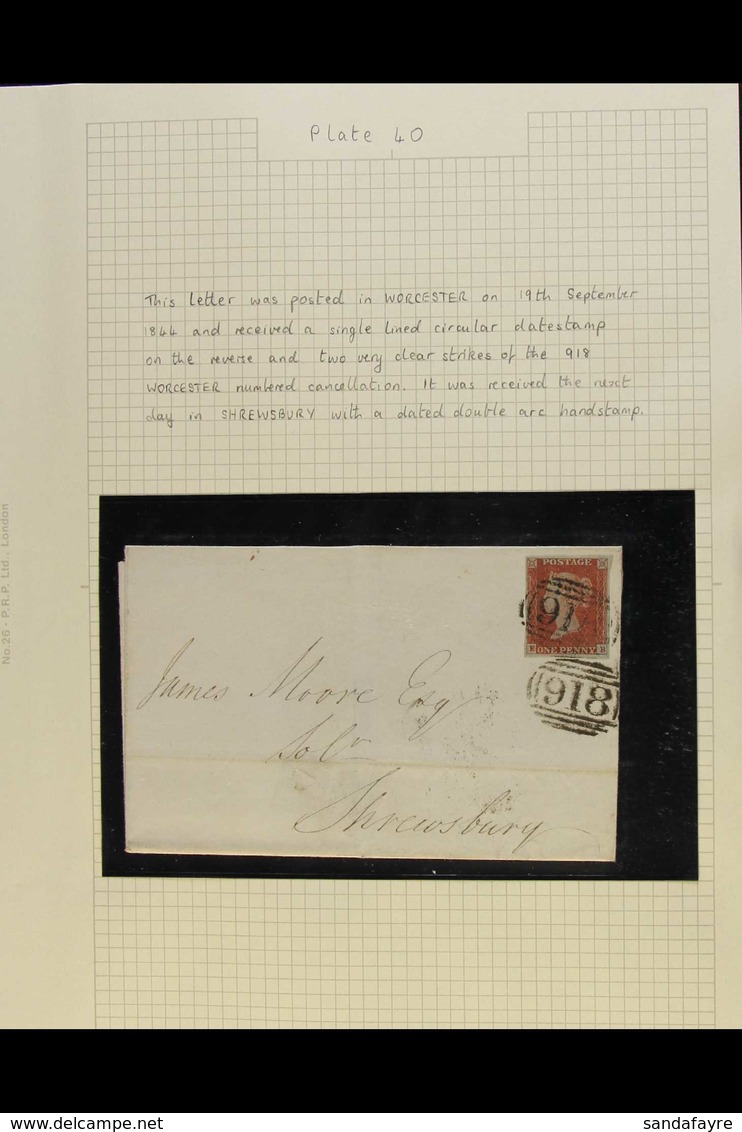 Plate 40
This letter was posted in WORCESTER on 19th September
1844 and received a single lined circular datestamp
on the reverse and two very clear strikes of the 918
WORCESTER numbered cancellation. It was received the next
day in SHREWSBURY with a dated double arc handstamp.
No.26 - P.R.P. Ltd., London
POSTAGE
91
ONE PENNY
918
James Moore Esq
Solr
Shrewsbury
www.delcampe.net
sandafayre